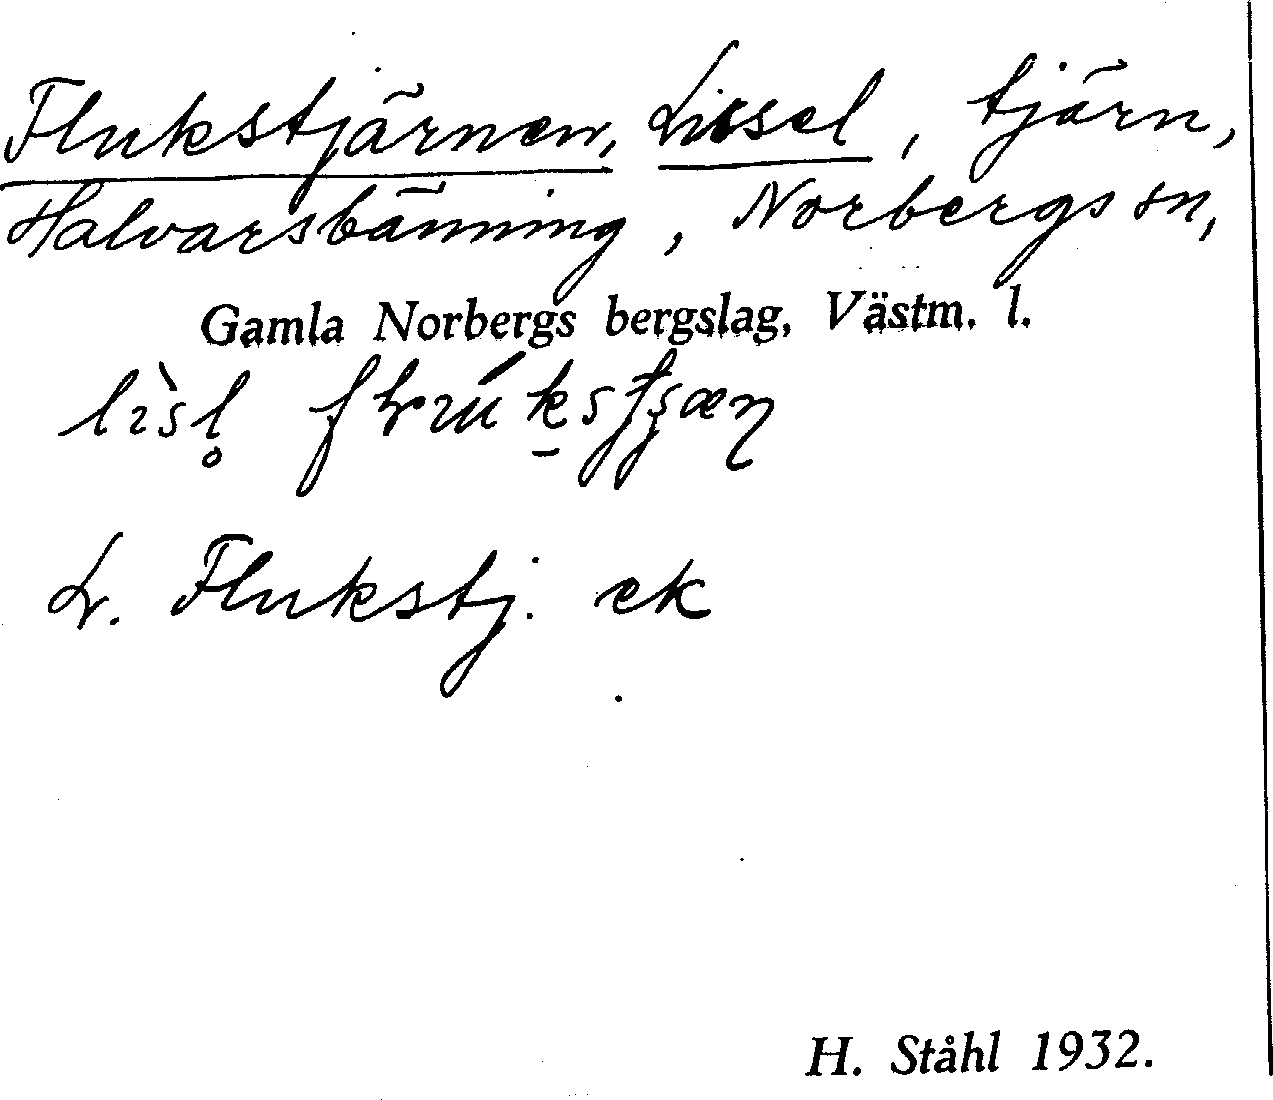 Flukstjärnen, Lissel, tjärn,
Halvarsbänning, Norbergs sn,
Gamla Norbergs bergslag, Västm. l.
L. Flukstj. ek
H. Ståhl 1932.